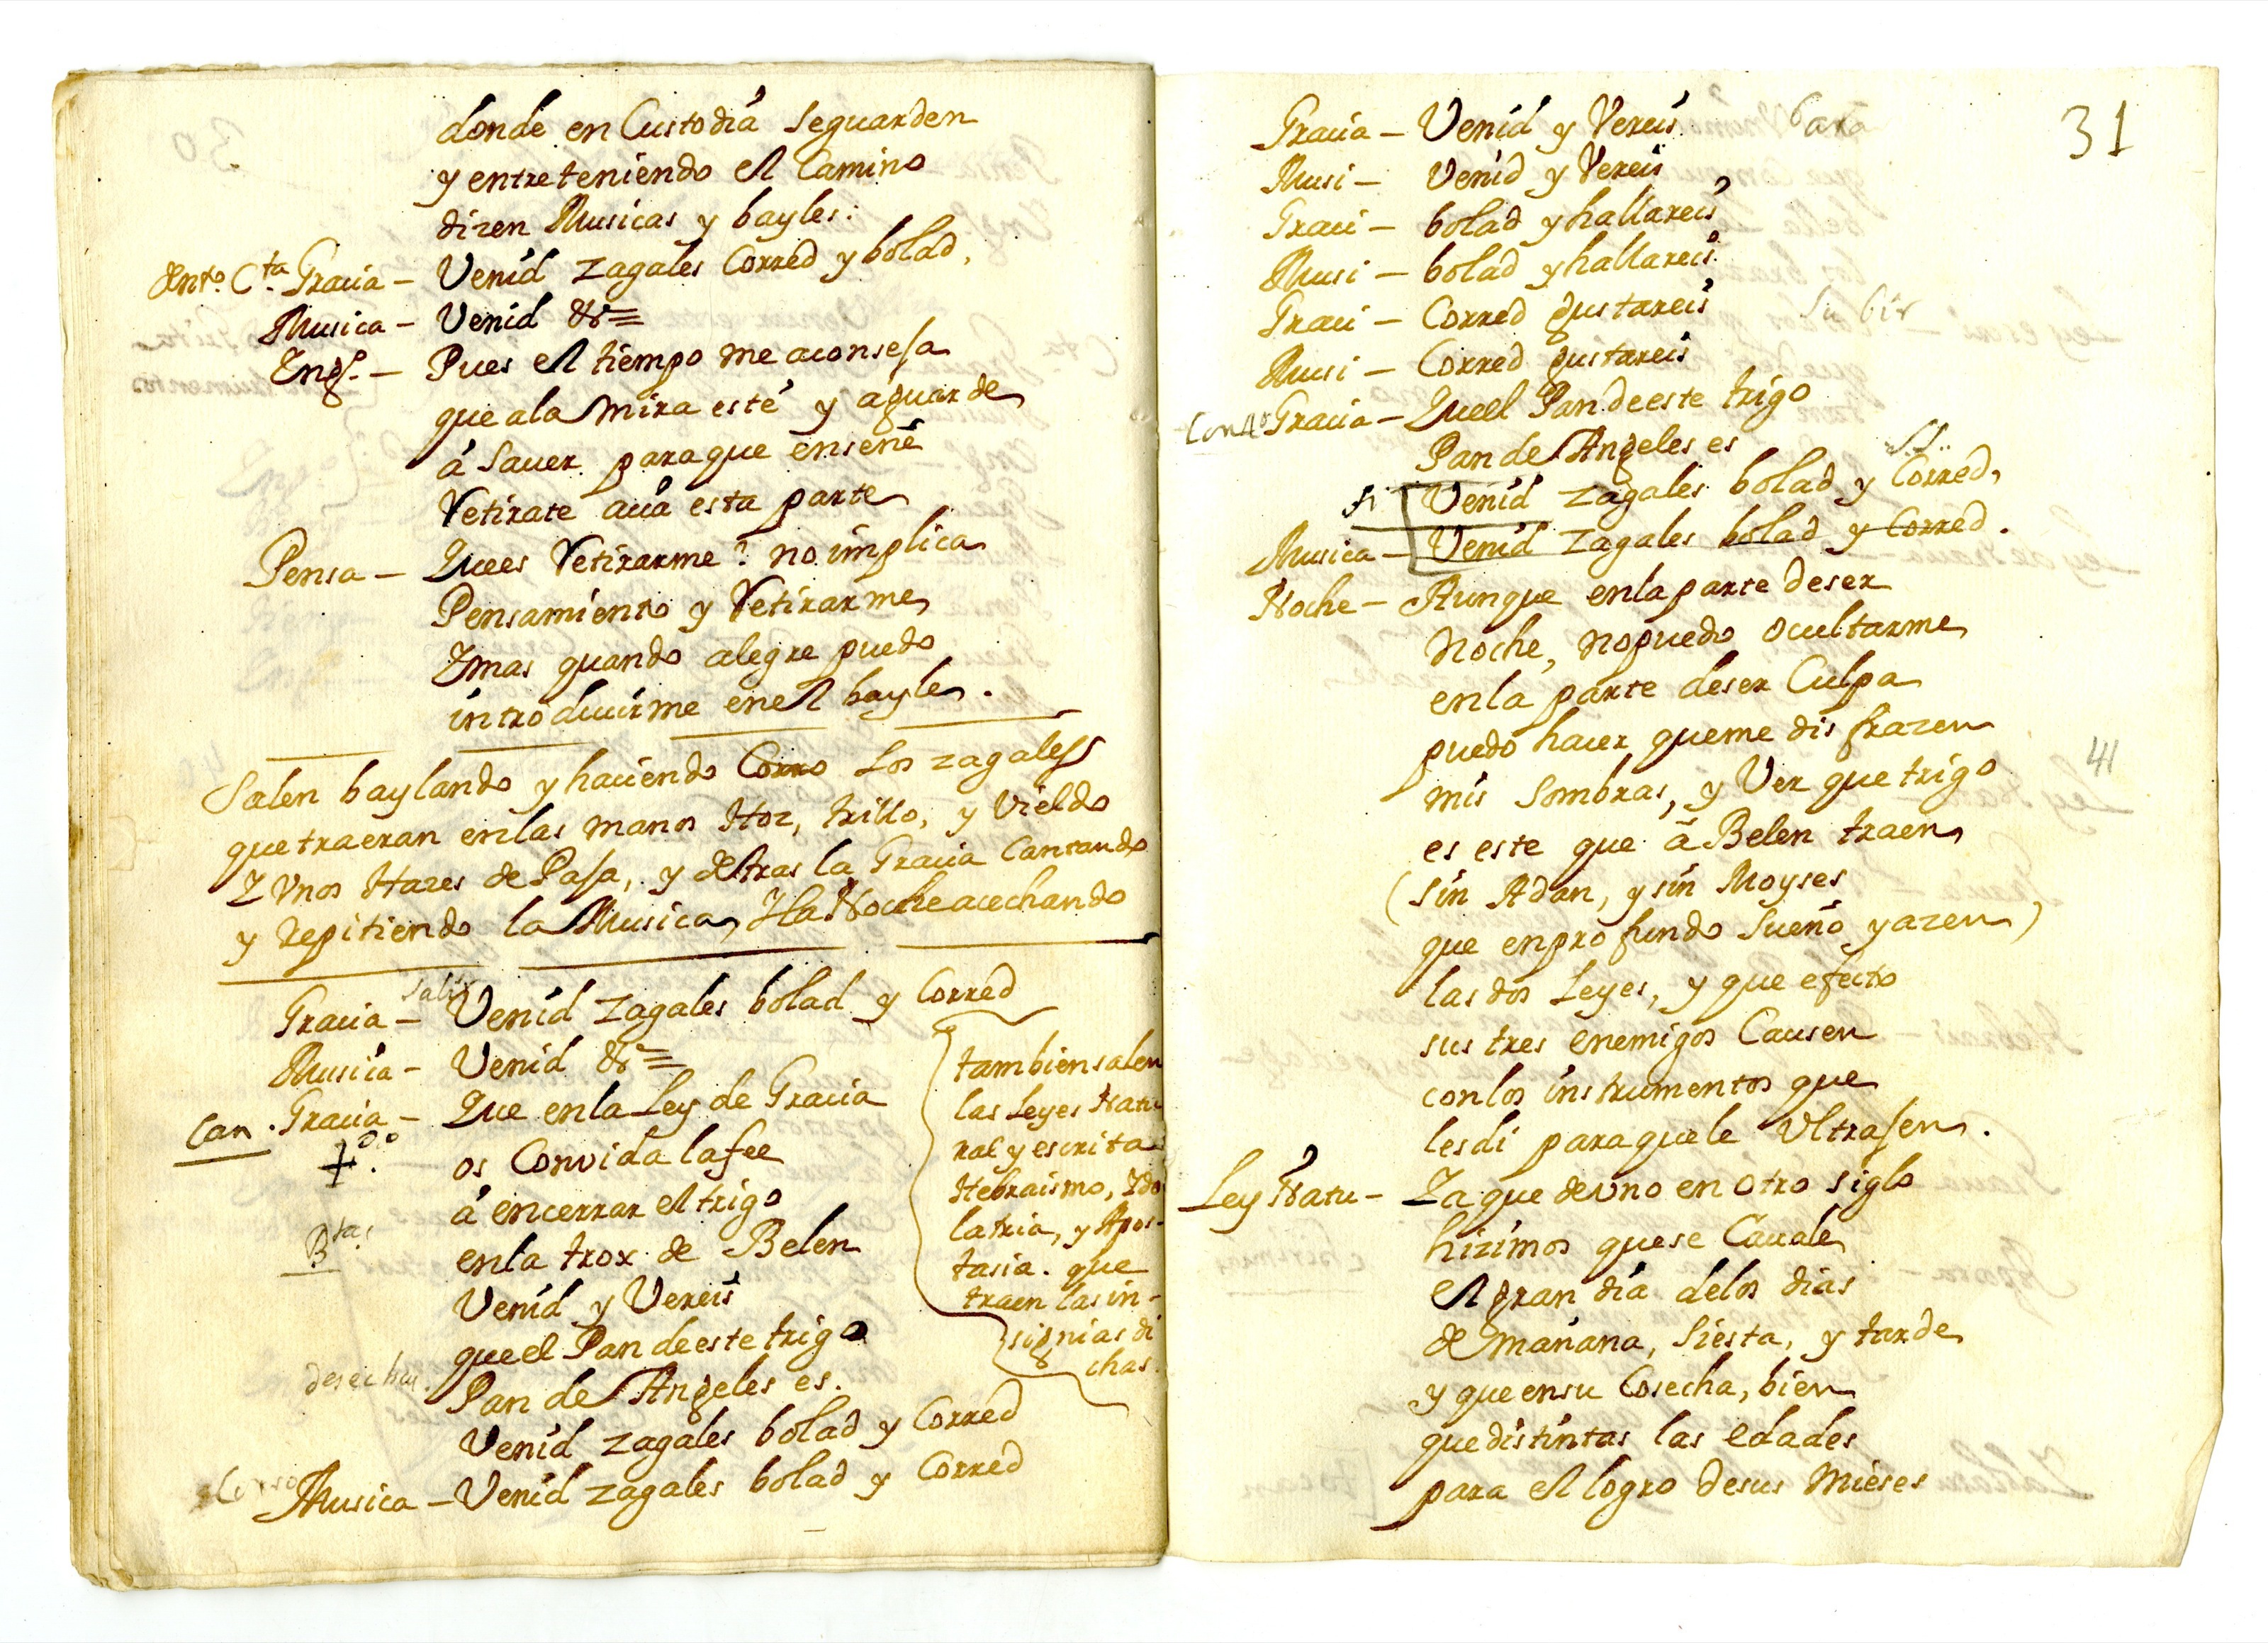 donde en Custodia seguarden
y entreteniendo el Camino
dizen Musicas y bayles.
dentº. Cta. Gracia — Venid zagales Corred y bolad,
Musica — Venid &ª =
Engº. — Pues el tiempo me aconseja
que ala mira esté y aguarde
á saver paraque enseñe
Retirate acia esta parte
Pensa — Quees Retirarme? no implica
Pensamiento y Retirarme
Ymas quando alegre puedo
introducirme enel bayle.
Salen baylando y haciendo Corro los zagales
que traeran enlas manos Hoz, trillo, y Vieldo
Y Vnos Hazes de Paja, y detras la Gracia Cantando
y repitiendo la Musica, Yla Noche acechando
salir
Gracia — Venid zagales bolad y Corred
Musica — Venid &ª =
Can. Gracia — Que enla Ley de Gracia
os Convida lafee
á encerrar el trigo
Btas
enla trox de Belen
Venid y Vereis
queel Pan deeste trigo
desechas.
Pan de Angeles es.
Venid zagales bolad y Corred
Corro
Musica — Venid zagales bolad y Corred
tambien salen
las Leyes Natu
ral y escrita
Hebraismo, Ydo
latria, y Apos-
tasia. que
traen las in-
signias di
chas.
31
Gracia — Venid y Vereis
para
Musi — Venid y Vereis
Graci — bolad y hallareis
Musi — bolad y hallareis
Graci — Corred gustareis
subir
Musi — Corred gustareis
Gracia — Queel Pan deeste trigo
Pan de Angeles es
si Venid zagales bolad y Corred,
Musica — Venid zagales bolad y Corred.
Noche — Aunque enla parte deser
Noche, nopuedo ocultarme
enla parte deser Culpa
puedo hacer queme disfrazen
41
mis sombras, y Ver que trigo
es este que á Belen traen
(sin Adan, y sin Moyses
que enprofundo sueño yazen)
las dos Leyes, y que efecto
sus tres enemigos Causen
conlos instrumentos que
lesdi paraquele Vltrajen.
Ley Natu — Ya que devno en otro siglo
hizimos quese Cavale
el gran dia delos dias
de mañana, siesta, y tarde
y queensu Cosecha, bien
quedistintas las edades
para el logro desus mieses